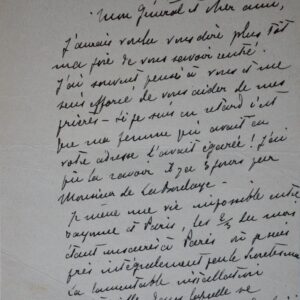 Mon Général et cher ami,
J'aurais voulu vous dire plus tôt
ma joie de vous savoir rentré.
J'ai souvent pensé à vous et me
suis efforcé de vous aider de mes
prières - Si je suis en retard c'est
que ma femme qui avait eu
votre adresse l'avait égarée ! J'ai
pu la ravoir il y a 3 jours par
Monsieur de La Bordaye -
Je mène une vie impossible entre
et Paris, les 2/3 du mois
étant à Paris où je suis
pris intégralement par le
La lamentable installation
dans laquelle se